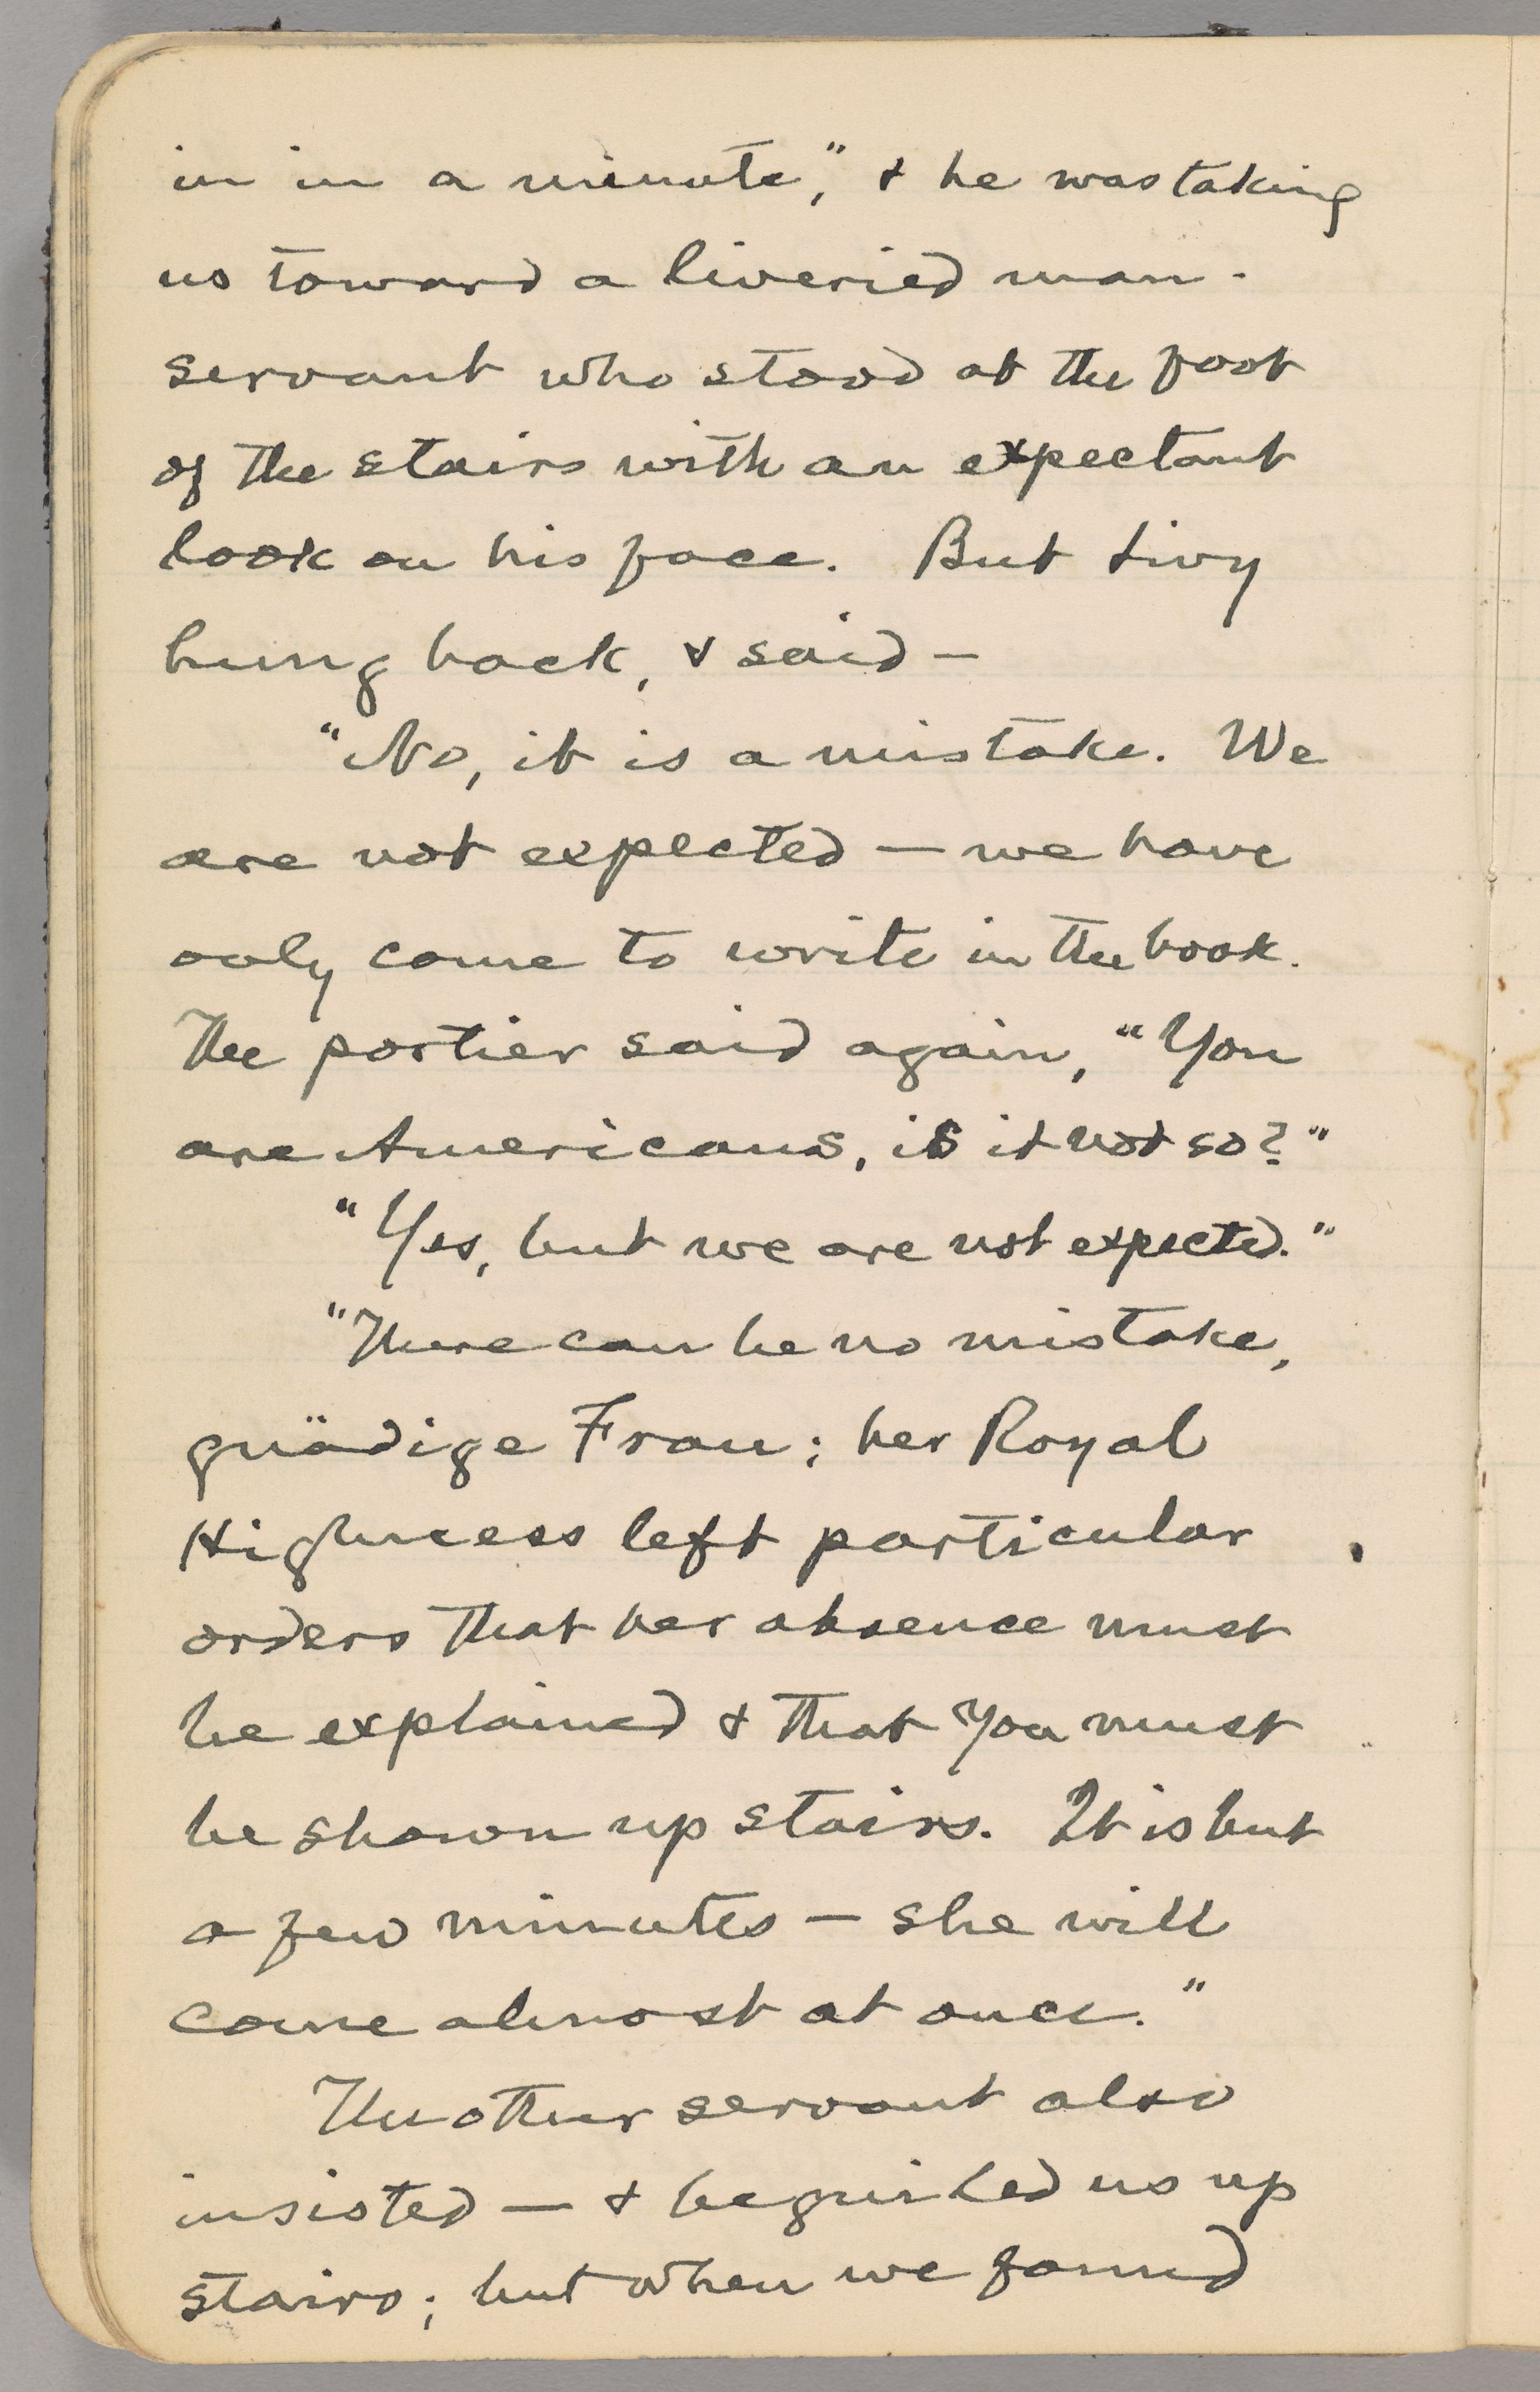 in in a minute," & he was taking
us toward a liveried man-
servant who stood at the foot
of the stairs with an expectant
look on his face. But Livy
hung back, & said —
"No, it is a mistake. We
are not expected — we have
only come to write in the book.
The portier said again, "You
are Americans, is it not so?"
"Yes, but we are not expected."
"There can be no mistake,
gnädige Frau; her Royal
Highness left particular
orders that her absence must
be explained & that you must
be shown up stairs. It is but
a few minutes — she will
come almost at once."
The other servant also
insisted — & beguiled us up
stairs; but when we found